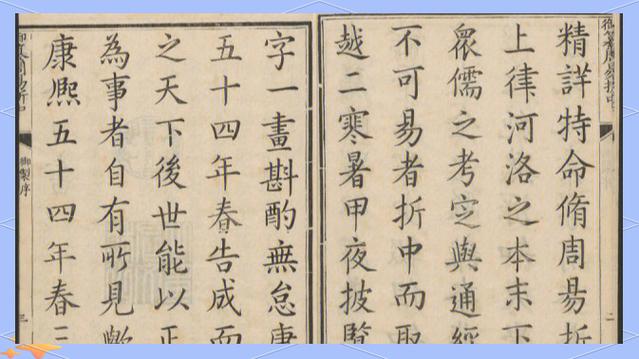 精詳特命脩周易折
上律河洛之本末下
眾儒之考定與通經
不可易者折中而取
越二寒暑甲夜披覧
字一畫斟酌無怠康
五十四年春告成而
之天下後世能以正
為事者自有所見歟
康熈五十四年春三
御製序
二
三